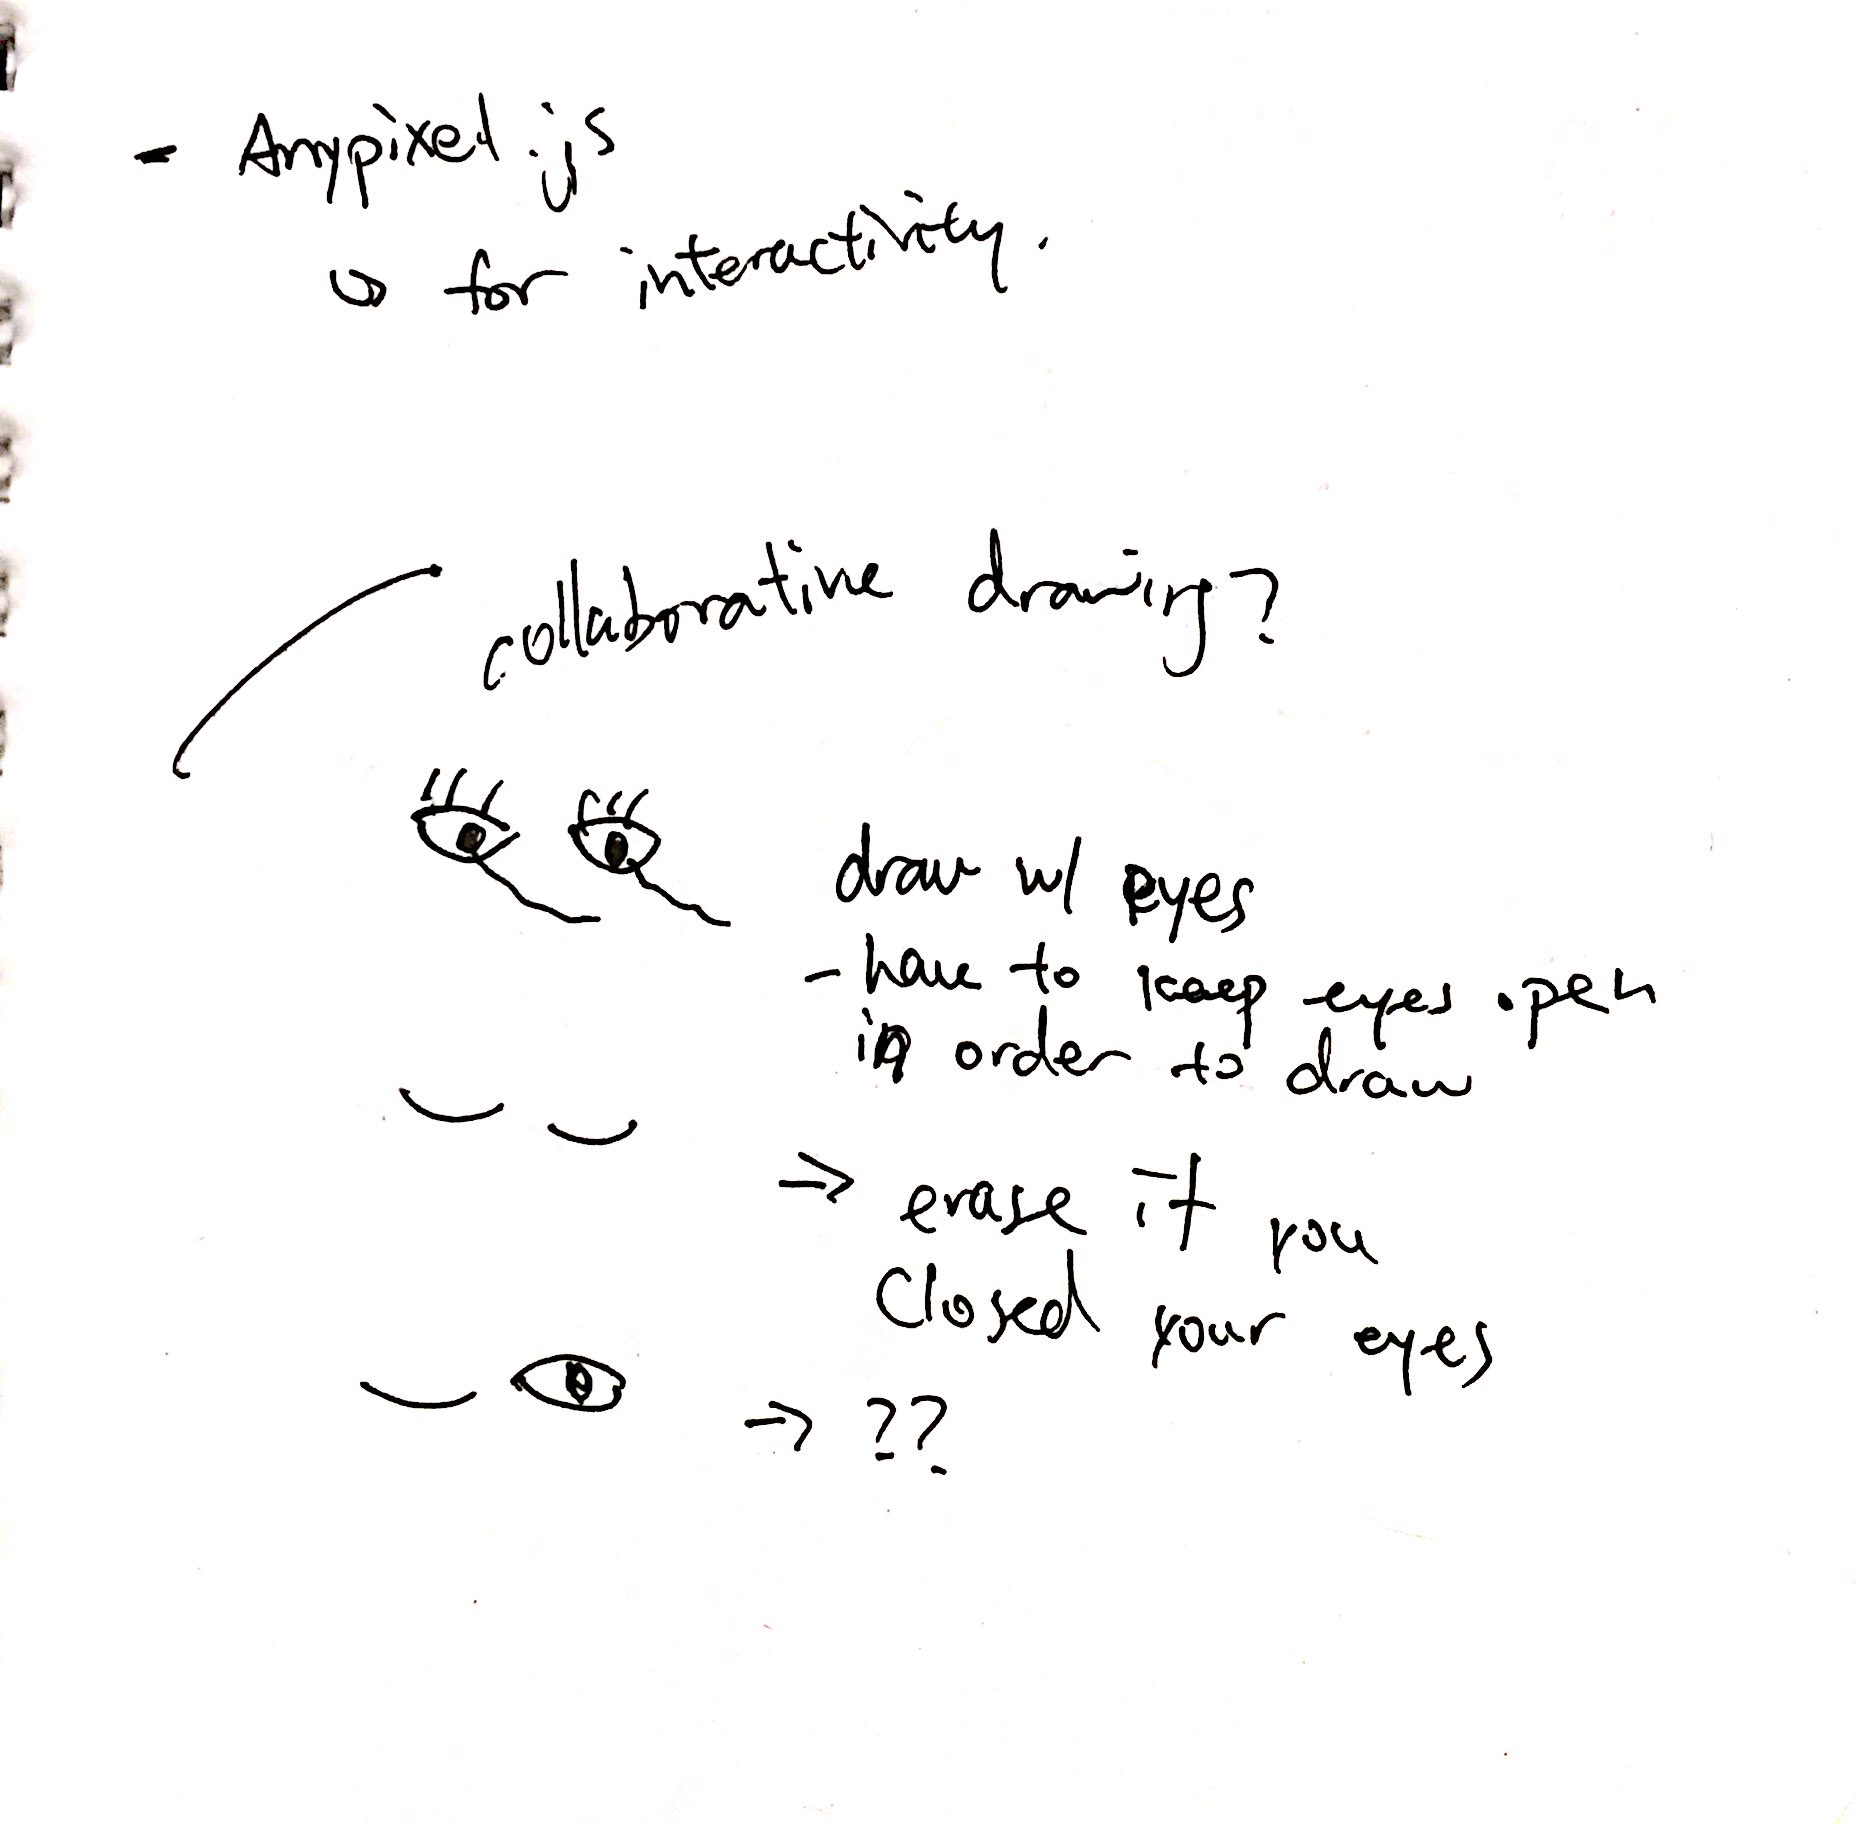 - Anypixel.js
↳ for interactivity.
collaborative drawing?
draw w/ eyes
- have to keep eyes open
in order to draw
⇒ erase it you
Closed your eyes
→ ??